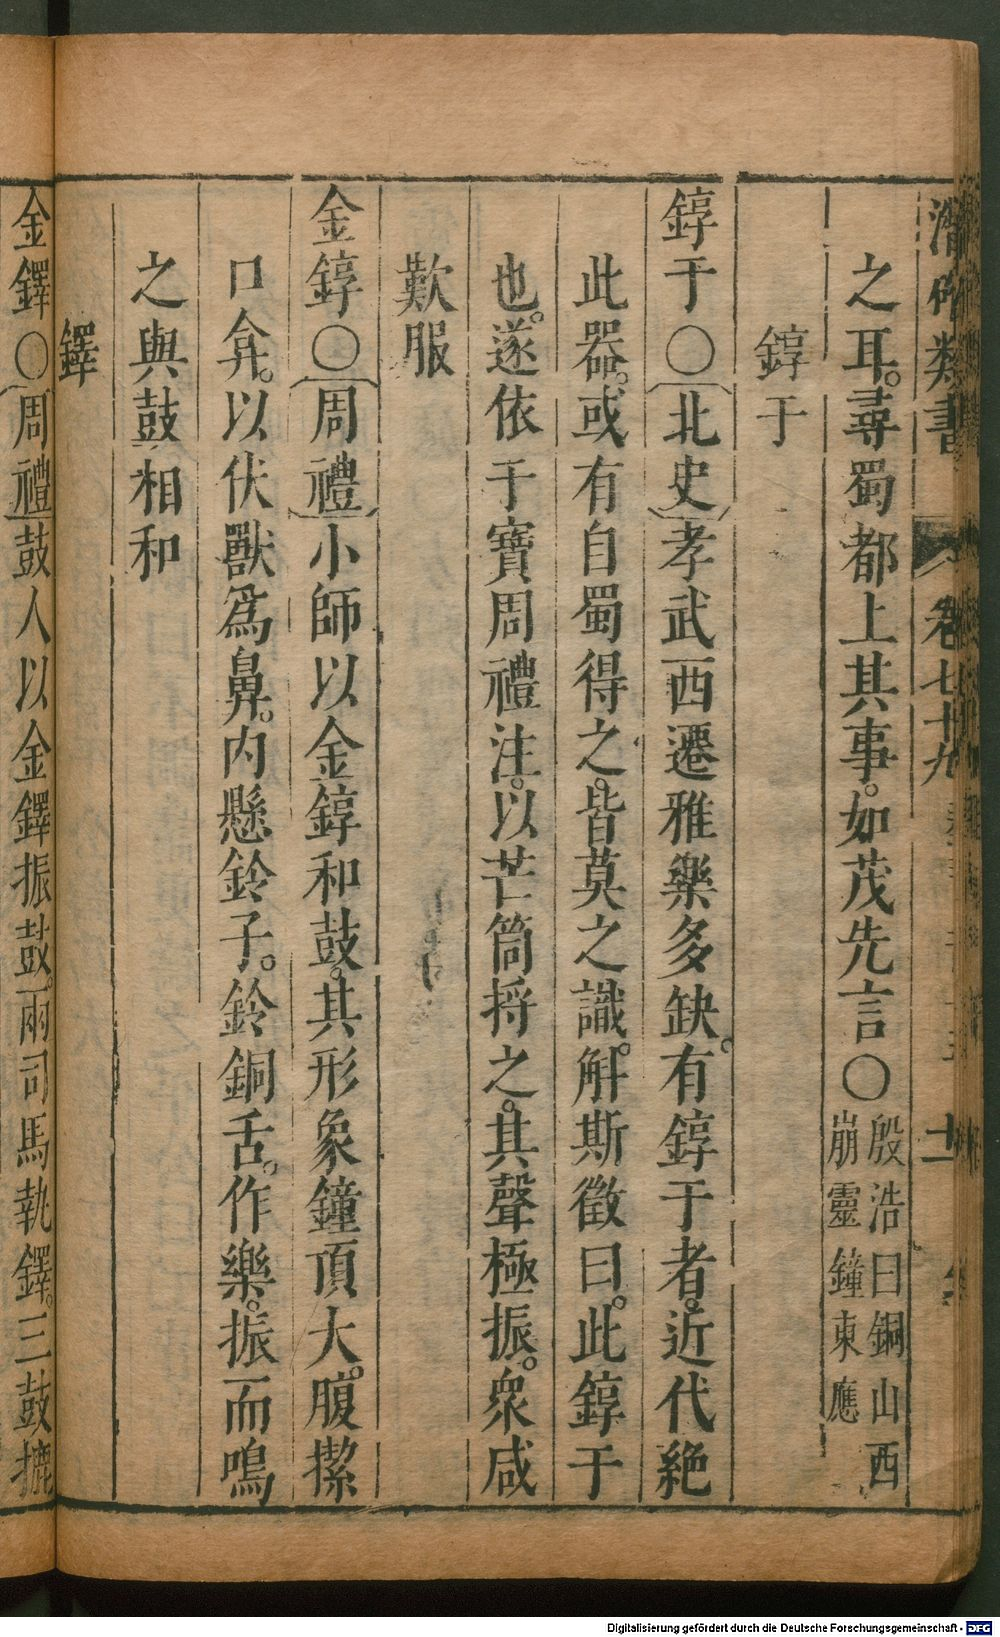 潛確類書 卷七十九 十二
之耳。尋蜀都上其事。如茂先言〇殷浩曰銅山西
崩靈鐘東應
錞于
錞于〇〔北史〕孝武西遷雅樂多缺。有錞于者。近代絕
此器。或有自蜀得之。皆莫之識。斛斯徵曰。此錞于
也。遂依于寶周禮注。以芒筒捋之。其聲極振。衆咸
歎服
金錞〇〔周禮〕小師以金錞和鼓。其形象鐘頂大。腹㩎
口弇。以伏獸爲鼻。内懸鈴子。鈴銅舌。作樂。振而鳴
之與鼓相和
鐸
金鐸〇〔周禮〕鼓人以金鐸振鼓。兩司馬執鐸。三鼓摝
Digitalisierung gefördert durch die Deutsche Forschungsgemeinschaft - DFG